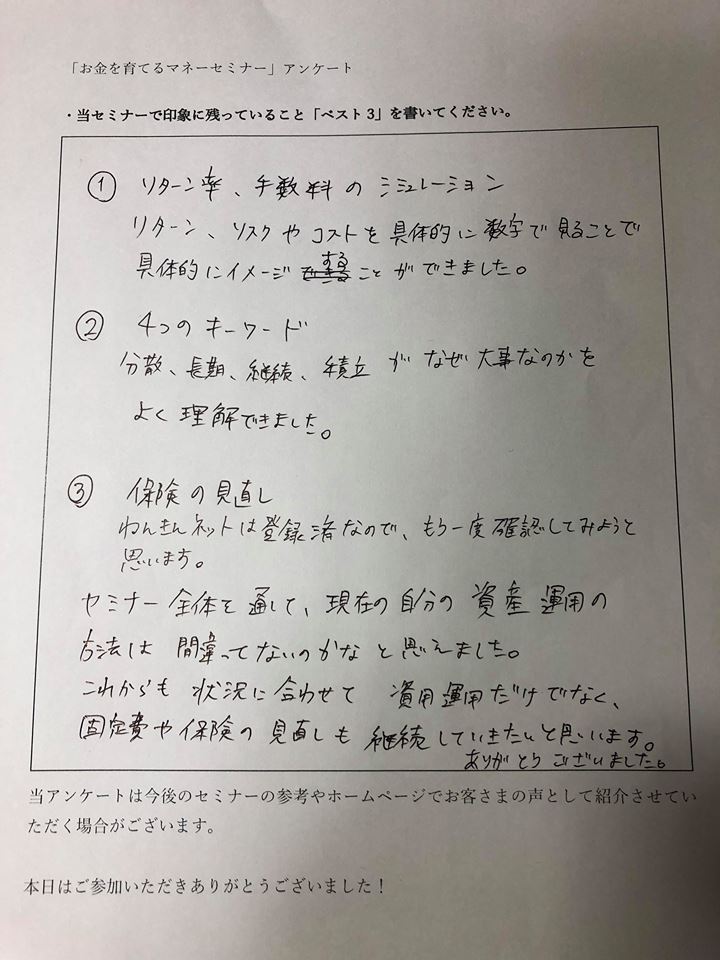 「お金を育てるマネーセミナー」アンケート
・当セミナーで印象に残っていること「ベスト3」を書いてください。
① リターン率、手数料のシミュレーション
リターン、リスクやコストを具体的に数字で見ることで
具体的にイメージすることができました。
② 4つのキーワード
分散、長期、継続、積立がなぜ大事なのかを
よく理解できました。
③ 保険の見直し
ねんきんネットは登録済なので、もう一度確認してみようと
思います。
セミナー全体を通して、現在の自分の資産運用の
方法は間違ってないのかなと思えました。
これからも状況に合わせて資用運用だけでなく、
固定費や保険の見直しも継続していきたいと思います。
ありがとうございました。
当アンケートは今後のセミナーの参考やホームページでお客さまの声として紹介させてい
ただく場合がございます。
本日はご参加いただきありがとうございました！